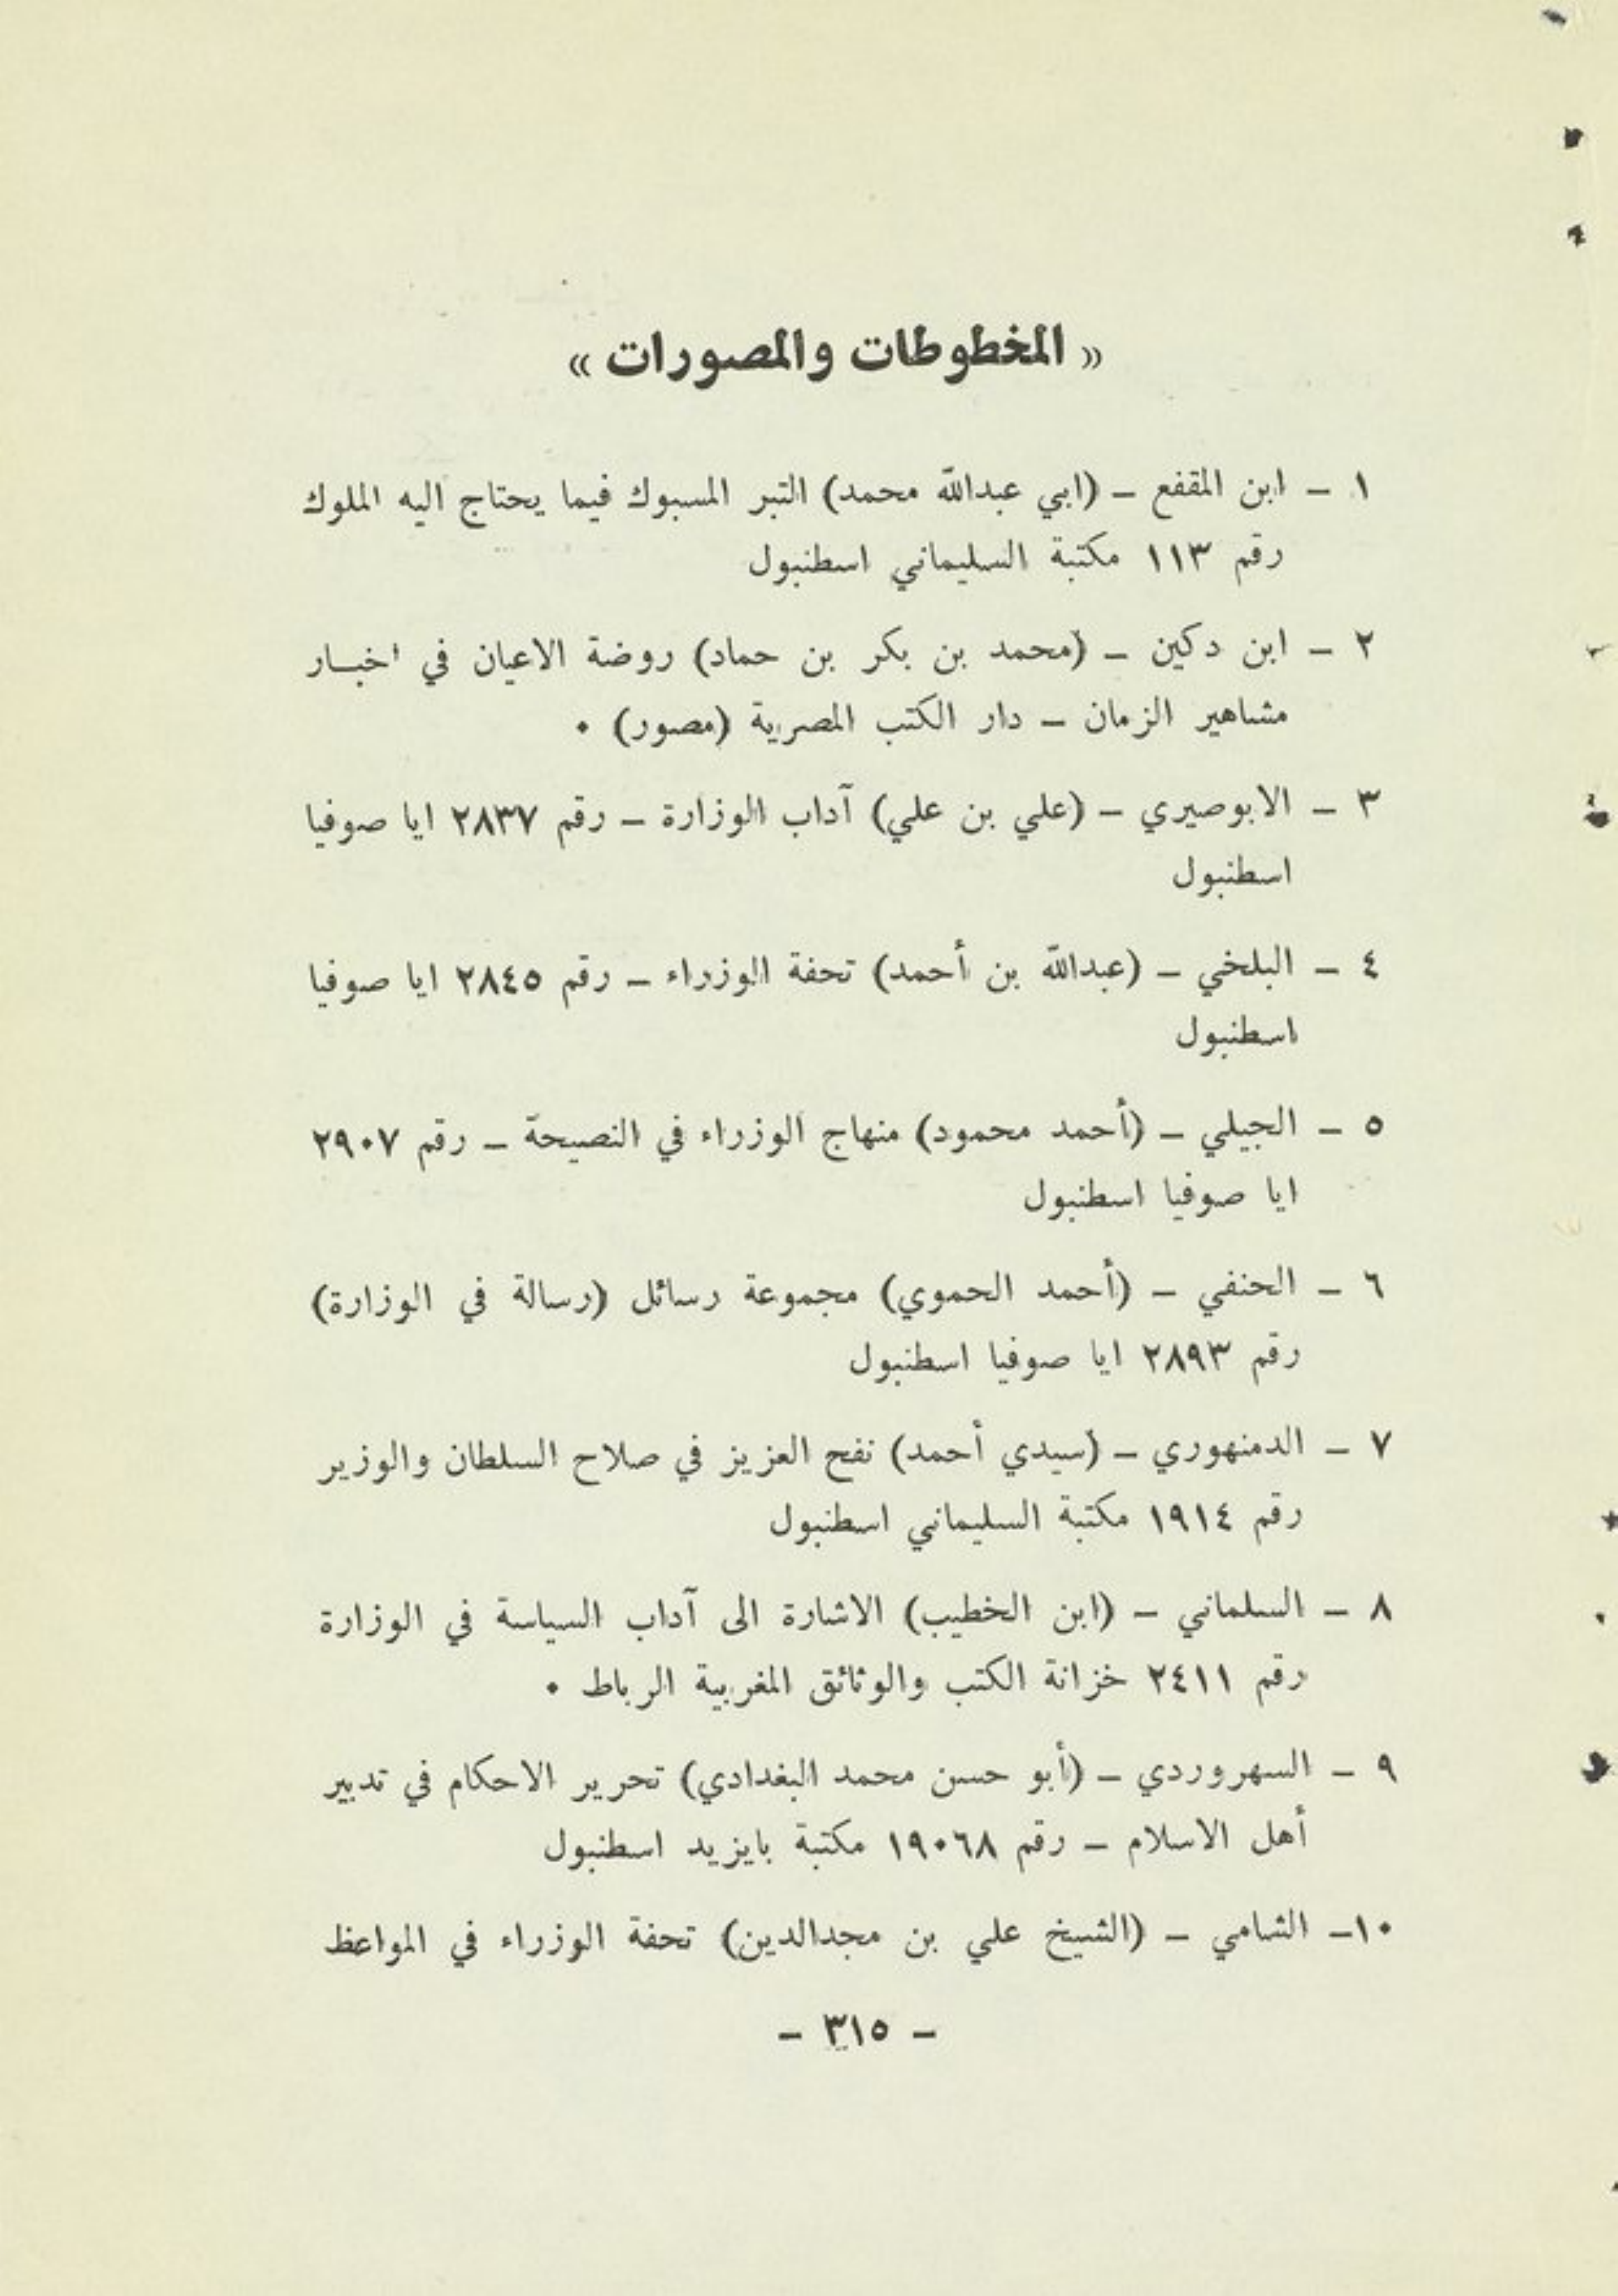 « المخطوطات والمصورات »
١ – ابن المقفع – (ابي عبدالله محمد) التبر المسبوك فيما يحتاج اليه الملوك
رقم ١١٣ مكتبة السليماني اسطنبول
٢ – ابن دكين – (محمد بن بكر بن حماد) روضة الاعيان في اخبـار
مشاهير الزمان – دار الكتب المصرية (مصور) ٠
٣ – الابوصيري – (علي بن علي) آداب الوزارة – رقم ٢٨٣٧ ايا صوفيا
اسطنبول
٤ – البلخي – (عبدالله بن أحمد) تحفة الوزراء – رقم ٢٨٤٥ ايا صوفيا
اسطنبول
٥ – الجيلي – (أحمد محمود) منهاج الوزراء في النصيحة – رقم ٢٩٠٧
ايا صوفيا اسطنبول
٦ – الحنفي – (أحمد الحموي) مجموعة رسائل (رسالة في الوزارة)
رقم ٢٨٩٣ ايا صوفيا اسطنبول
٧ – الدمنهوري – (سيدي أحمد) نفح العزيز في صلاح السلطان والوزير
رقم ١٩١٤ مكتبة السليماني اسطنبول
٨ – السلماني – (ابن الخطيب) الاشارة الى آداب السياسة في الوزارة
رقم ٢٤١١ خزانة الكتب والوثائق المغربية الرباط ٠
٩ – السهروردي – (أبو حسن محمد البغدادي) تحرير الاحكام في تدبير
أهل الاسلام – رقم ١٩٠٦٨ مكتبة بايزيد اسطنبول
١٠– الشامي – (الشيخ علي بن مجدالدين) تحفة الوزراء في المواعظ
– ٣١٥ –